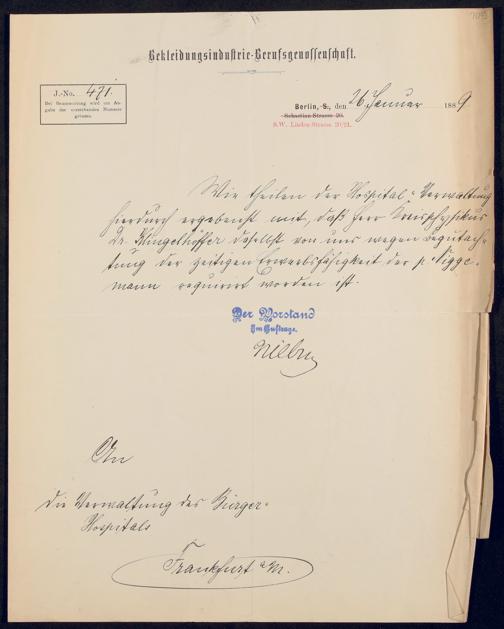 Bekleidungsindustrie-Berufsgenossenschaft.
J.-No. 471.
Bei Beantwortung wird um An-
gabe der vorstehenden Nummer
gebeten.
Berlin, S., den 26 Januar 1889
Sebastian-Strasse 20.
S.W. Linden-Strasse 20/21.
Wir theilen der Hospital-Verwaltung
hierdurch ergebenst mit, daß Herr Kreisphysikus
Dr. Klingelhöffer daselbst von uns wegen Begutach-
tung der zeitigen Erwerbsfähigkeit der p Nigge-
mann requirirt worden ist.
Der Vorstand
Im Auftrage.
An
die Verwaltung des Bürger-
Hospitals
Frankfurt a/M.